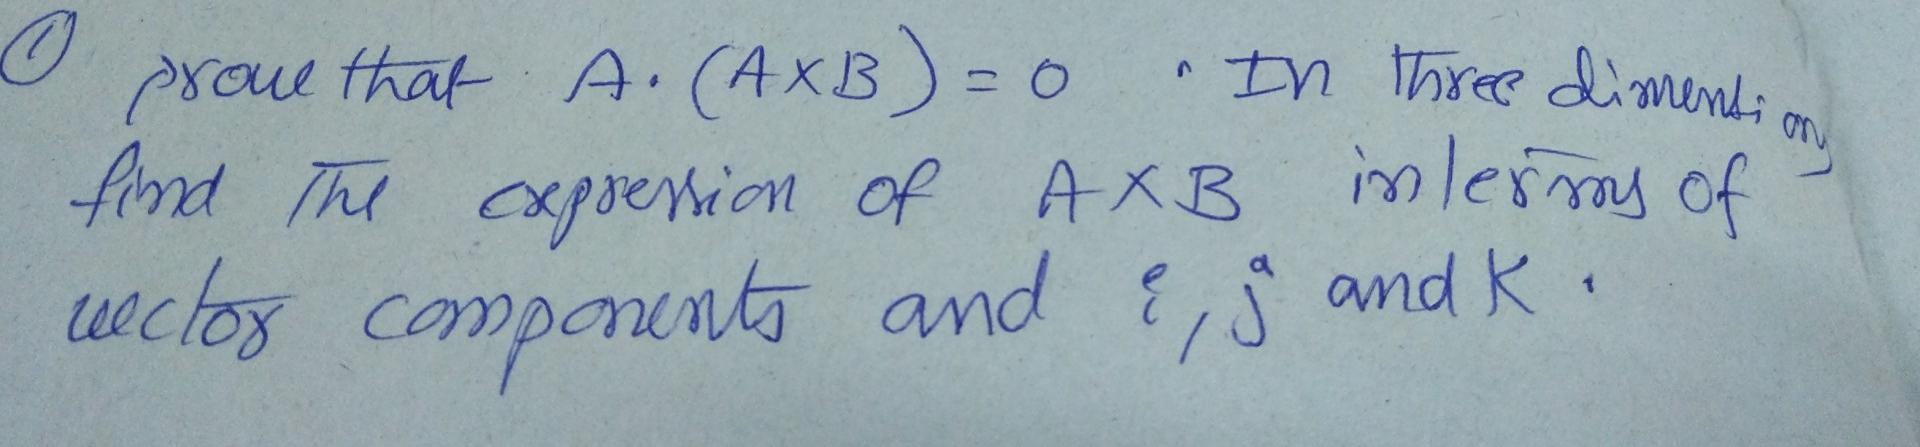 ① prove that A.(A×B)=0 . In three dimensions
find the expression of A×B in terms of
vector components and i, j and k.